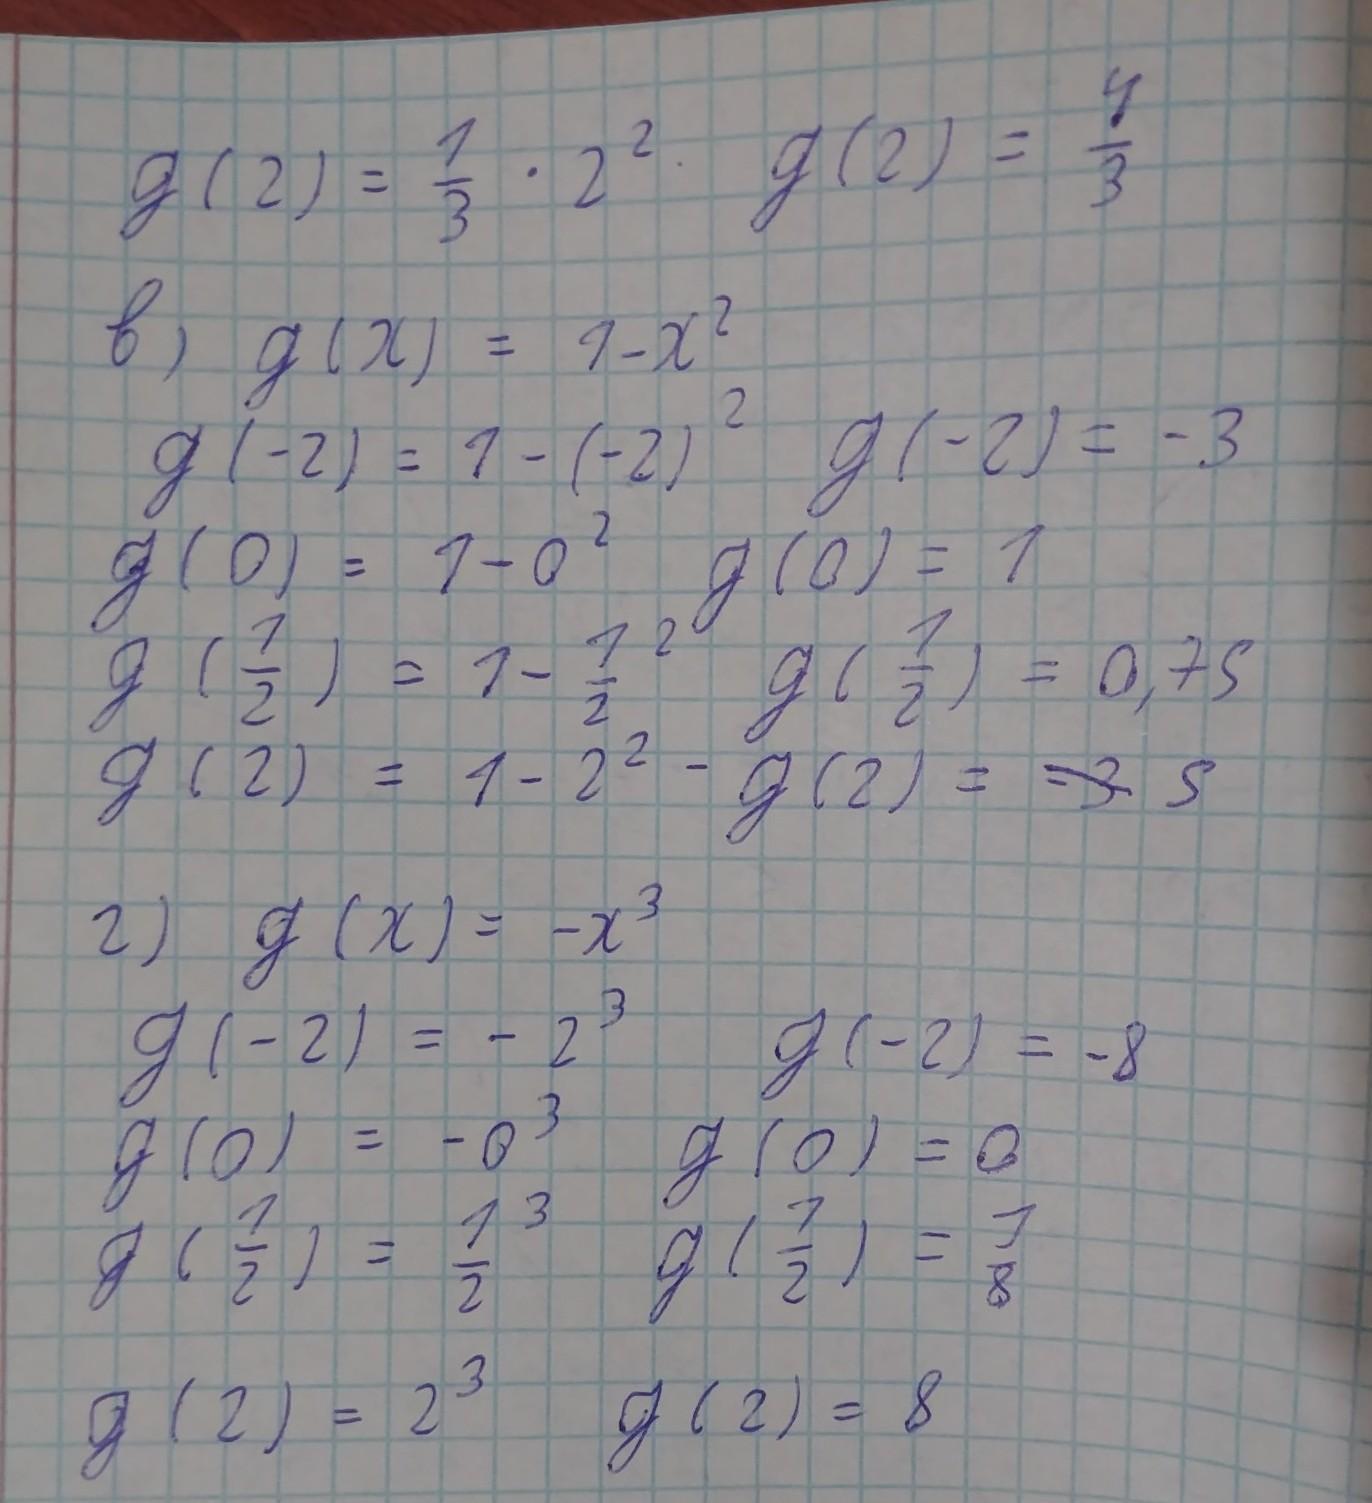 g(2) = 1/3 · 2² g(2) = 4/3
в) g(x) = 1-x²
g(-2) = 1-(-2)² g(-2) = -3
g(0) = 1-0² g(0) = 1
g(1/2) = 1- 1/2² g(1/2) = 0,75
g(2) = 1-2² - g(2) = 5
г) g(x) = -x³
g(-2) = -2³ g(-2) = -8
g(0) = -0³ g(0) = 0
g(1/2) = 1/2³ g(1/2) = 1/8
g(2) = 2³ g(2) = 8